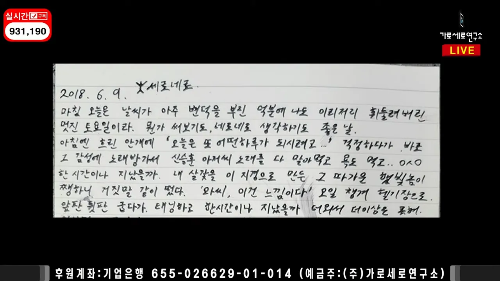 실시간
931,190
가로세로연구소
LIVE
2018. 6. 9. 세로네로
마침 오늘은 날씨가 아주 변덕을 부린 덕분에 나도 이리저리 휘둘려버린
멋진 토요일이라. 뭔가 써보기도, 네로네로 생각하기도 좋은 날.
아침엔 흐린 안개에 '오늘은 또 어떤하루가 되시려고...' 걱정하다가 바로
그 감성에 노래방가서 신승훈 아저씨 노래를 다 말아먹고 목도 먹고.. 0^0
한시간이나 지났을까. 내 살갗을 이 지경으로 만든 그 따가운 햇빛놈이
쨍하니 거짓말 같이 떴다. '와씨, 이건 느낌이다!' 오일 챙겨 헬기장으로.
앞판 뒷판 굽다가. 태닝하고 한시간이나 지났을까 더워서 더이상은 못해.
후원계좌:기업은행 655-026629-01-014 (예금주:(주)가로세로연구소)